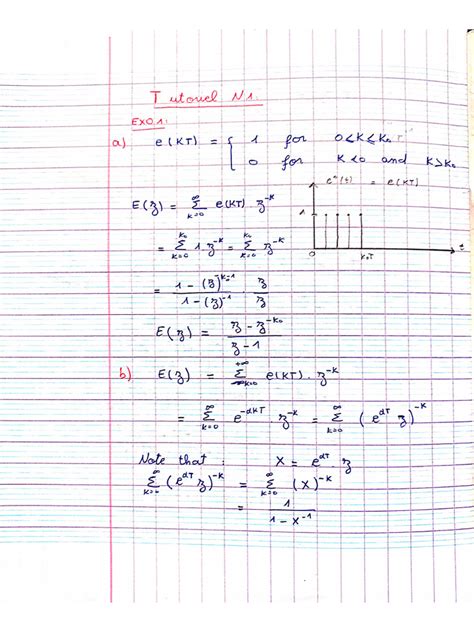 Tutoriel N1.
EXO1:
a) e(KT) = { 1 for 0≤K≤K₀
0 for K<0 and K>K₀
e*(t) = e(KT)
1
0 K₀T t
E(z) = Σ_{K=0}^{∞} e(KT) z^{-K}
= Σ_{K=0}^{K₀} 1 z^{-K} = Σ_{K=0}^{K₀} z^{-K}
= (1 - (z)^{-K₀-1}) / (1 - (z)^{-1}) · z/z
E(z) = (z - z^{-K₀}) / (z - 1)
b) E(z) = Σ_{K=0}^{+∞} e(KT) · z^{-K}
= Σ_{K=0}^{∞} e^{-αKT} · z^{-K} = Σ_{K=0}^{∞} (e^{αT} z)^{-K}
Note that : X = e^{αT} · z
Σ_{K=0}^{∞} (e^{αT} z)^{-K} = Σ_{K=0}^{∞} (X)^{-K}
= 1 / (1 - X^{-1})